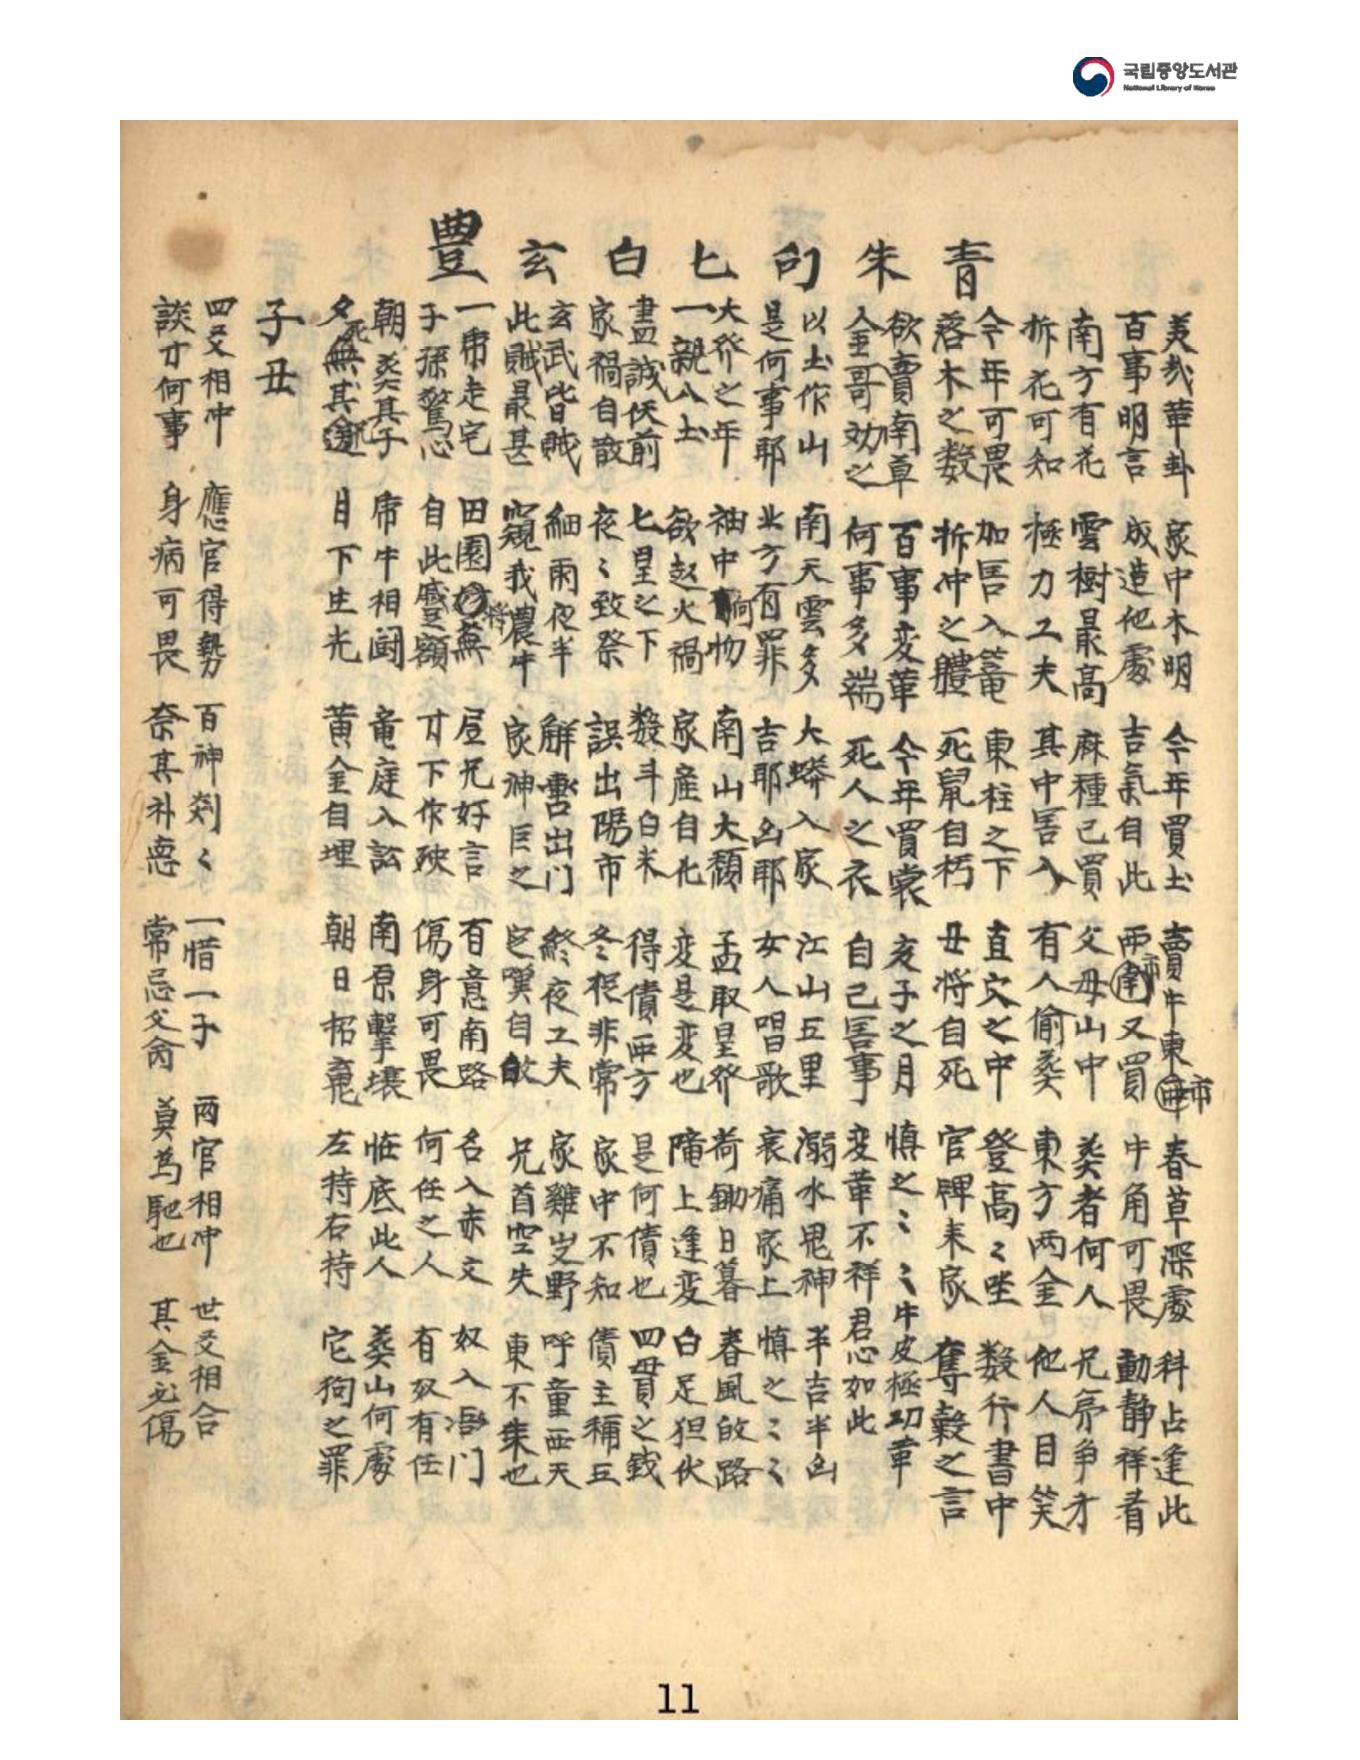 국립중앙도서관
National Library of Korea
美哉華卦 家中木明 今年買土 賣牛東市 春草深處 科占逢此
百事明言 成造他處 吉氣自此 西市又買 牛角可畏 動靜祥看
南方有花 雲樹最高 麻種已買 父母山中 葬者何人 兄弟爭才
折花可知 極力工夫 其中害入 有人偷葬 東方两金 他人目笑
青
今年可畏 加害入竃 東柱之下 直穴之中 登高〻坐 数行書中
落木之数 折冲之軆 死鼠自朽 丑将自死 官睥来家 奪穀之言
欲賣南草 百事変革 今年買裳 亥子之月 慎之〻〻 牛皮極切革
朱
金哥効之 何事多端 死人之衣 自己害事 変革不祥 君心如此
以土作山 南天雲多 大蟒入家 江山五里 溺水鬼神 半吉半凶
勾
是何事耶 北方有罪 吉耶凶耶 女人唱歌 哀痛家上 慎之〻〻
大發之年 袖中何物 南山大頹 孟取星發 荷鋤日暮 春風的路
七
一親八土 欲起火禍 家産自化 变是変也 隴上逢変 白足狚伏
盡誠伏前 七星之下 数斗白米 得債西方 是何債也 四百之銭
白
家禍自散 夜〻致祭 誤出陽市 冬柩非常 家中不知 債主稱五
玄武皆賊 細雨夜半 解雲出门 終夜工夫 家雞岁野 呼童西天
玄
此賊最甚 窺我農牛 家神臣之 它嘆自故 兄首空失 東不来也
一帶走宅 田園将蕪 屋兄好言 有意南路 名入赤文 奴入门
豊
子孫驚心 自此蹙額 寸下作殃 傷身可畏 何任之人 有奴有任
朝葬其子 席牛相闘 竜庭入訟 南原擊壤 临底此人 葬山何處
夕死無其迹 月下生光 黄金自埋 朝日招寃 左持右持 它狗之罪
子丑
四爻相冲 應官得勢 百神剡〻 一惜一子 兩官相冲 世爻相合
談才何事 身病可畏 奈其朴悳 常忌父商 莫為馳也 其金必傷
11